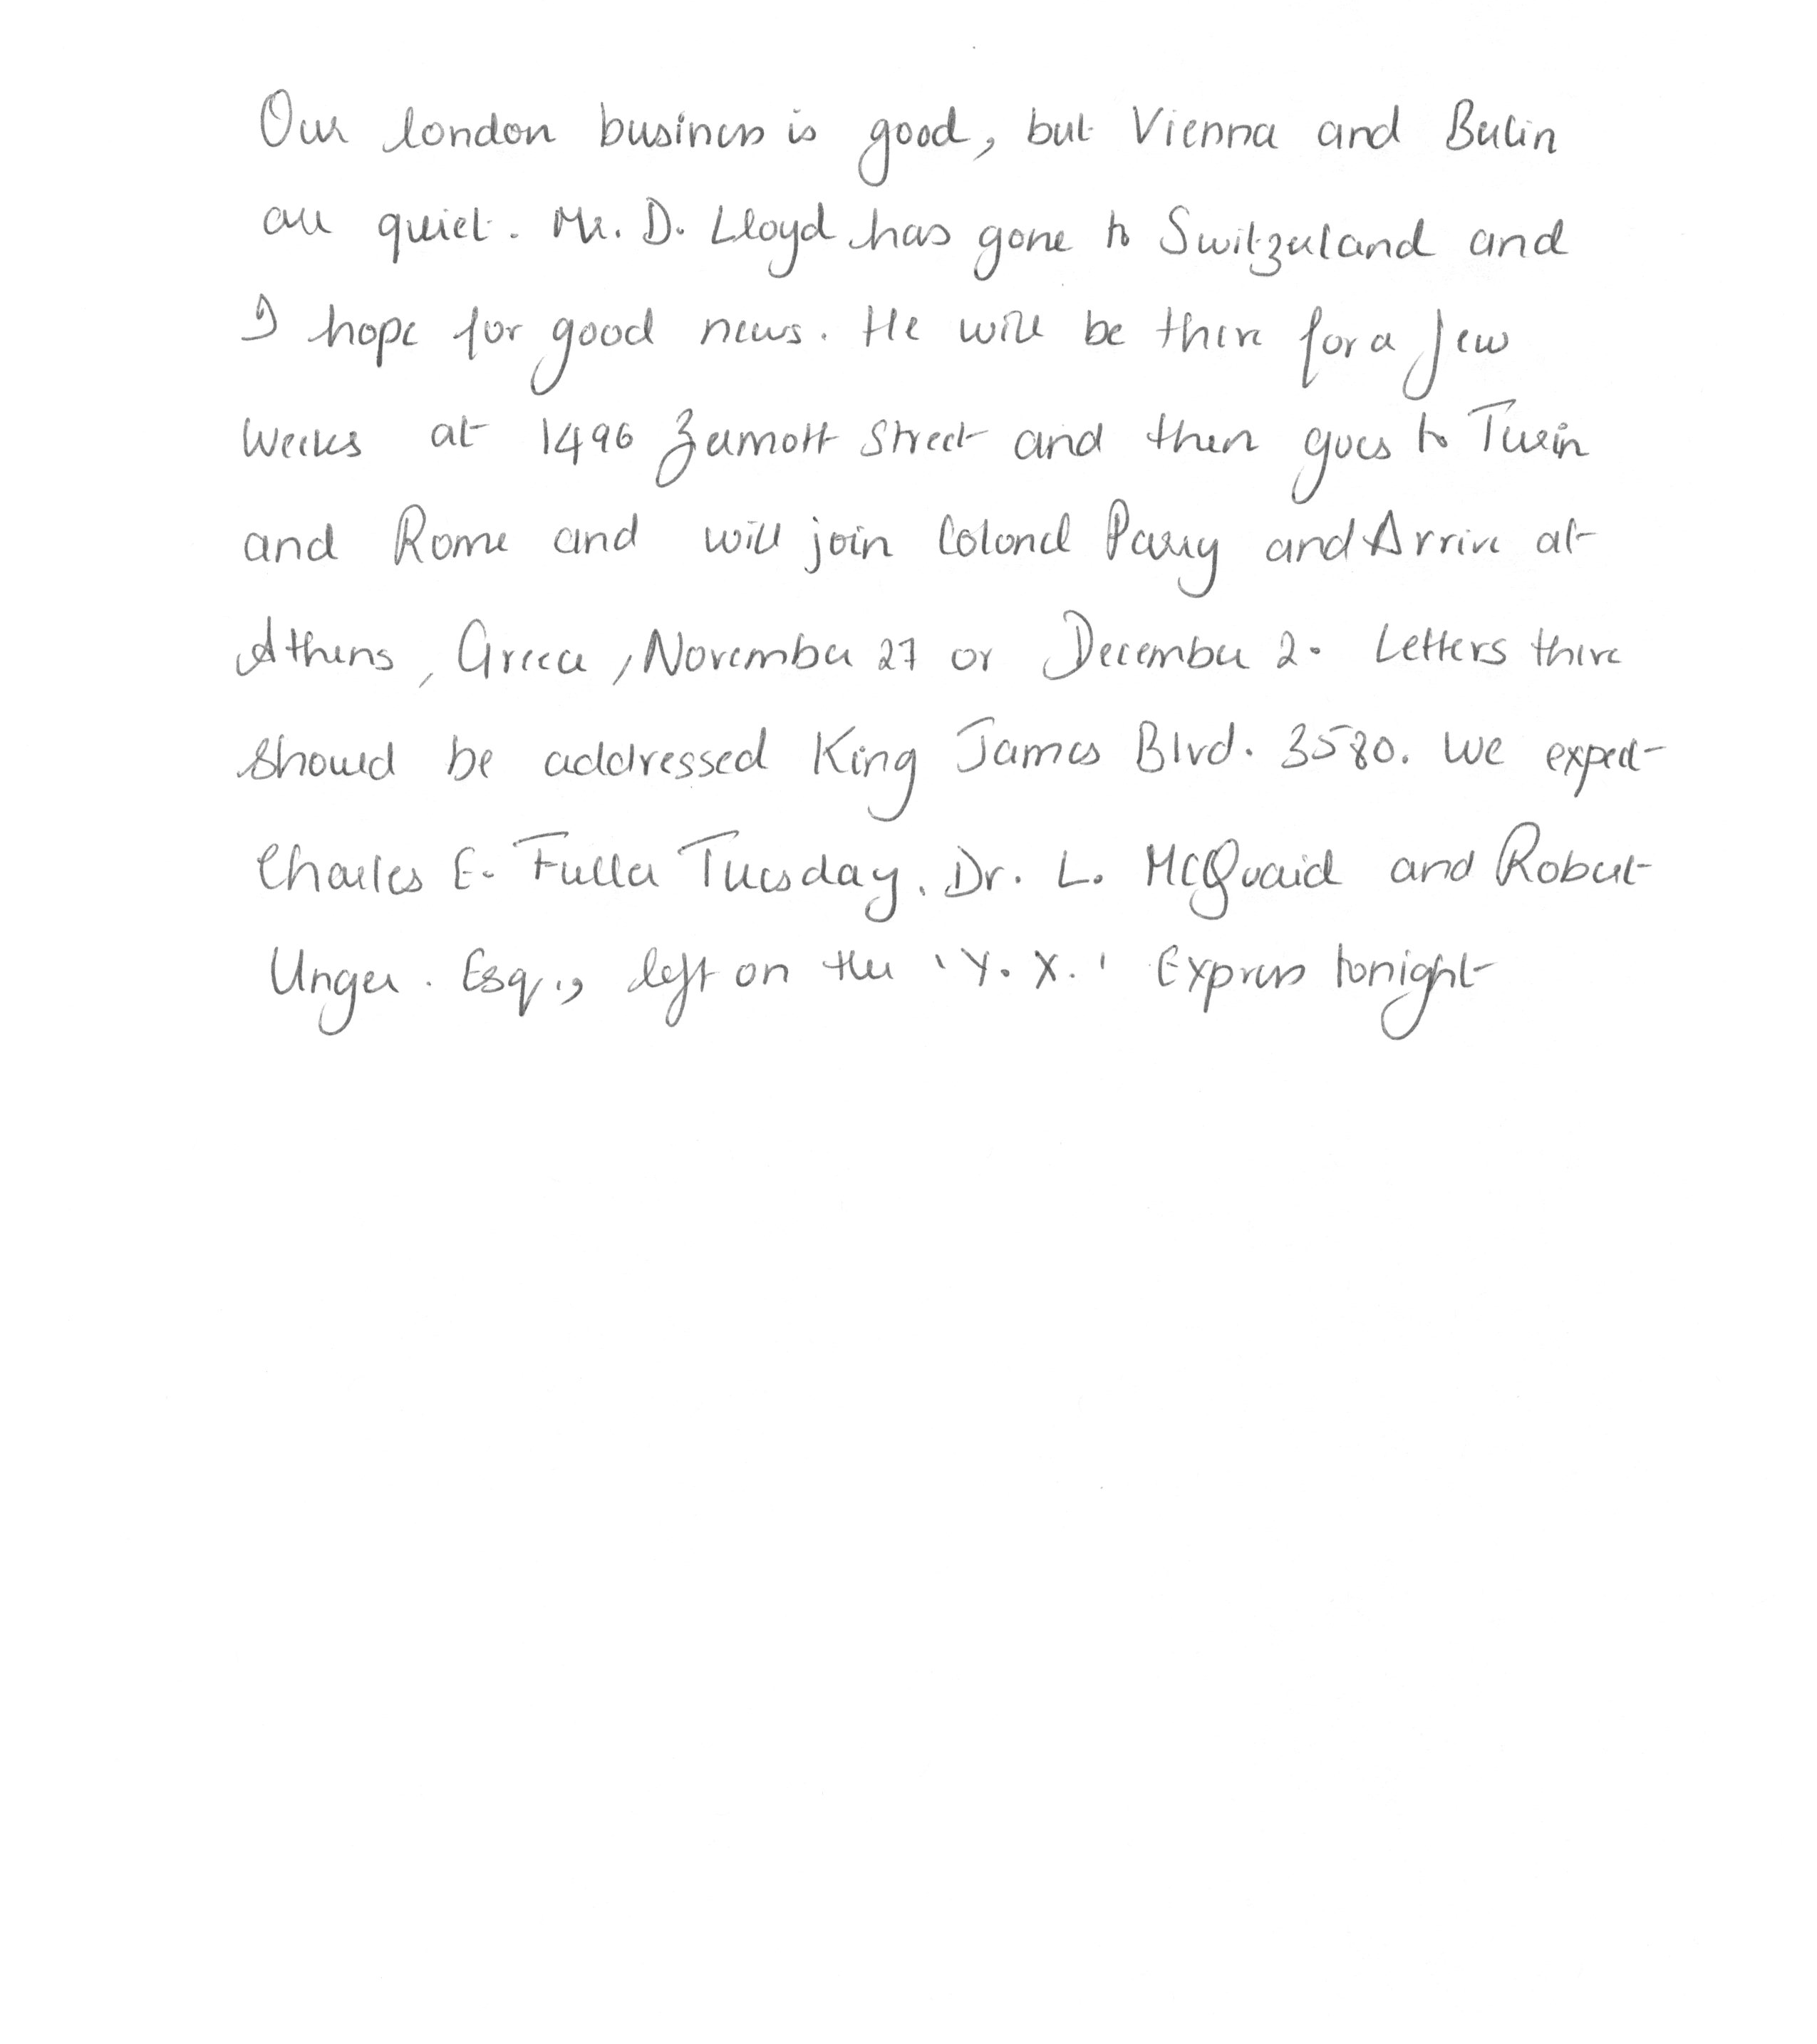 Our london business is good, but Vienna and Berlin
are quiet. Mr. D. Lloyd has gone to Switzerland and
I hope for good news. He will be there for a few
weeks at 1496 Zermott Street and then goes to Turin
and Rome and will join Colonel Parry and Arrive at
Athens, Greece, November 27 or December 2. Letters there
should be addressed King James Blvd. 3580. We expect
Charles E. Fuller Tuesday. Dr. L. McQuaid and Robert
Unger. Esq., left on the 'Y. X.' Express tonight